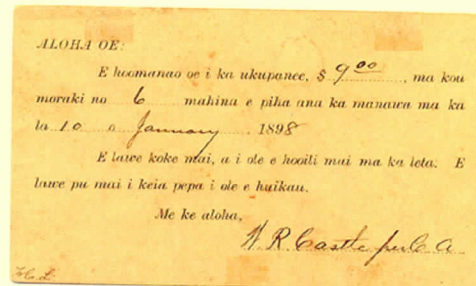 ALOHA OE:
E hoomanao oe i ka ukupanee, $ 9 00, ma kou
moraki no 6 mahina e piha ana ka manawa ma ka
la 10 o January 1898
E lawe koke mai, a i ole e hooili mai ma ka leta. E
lawe pu mai i keia pepa i ole e huikau.
Me ke aloha,
W R Castle per C A
H.C.L.